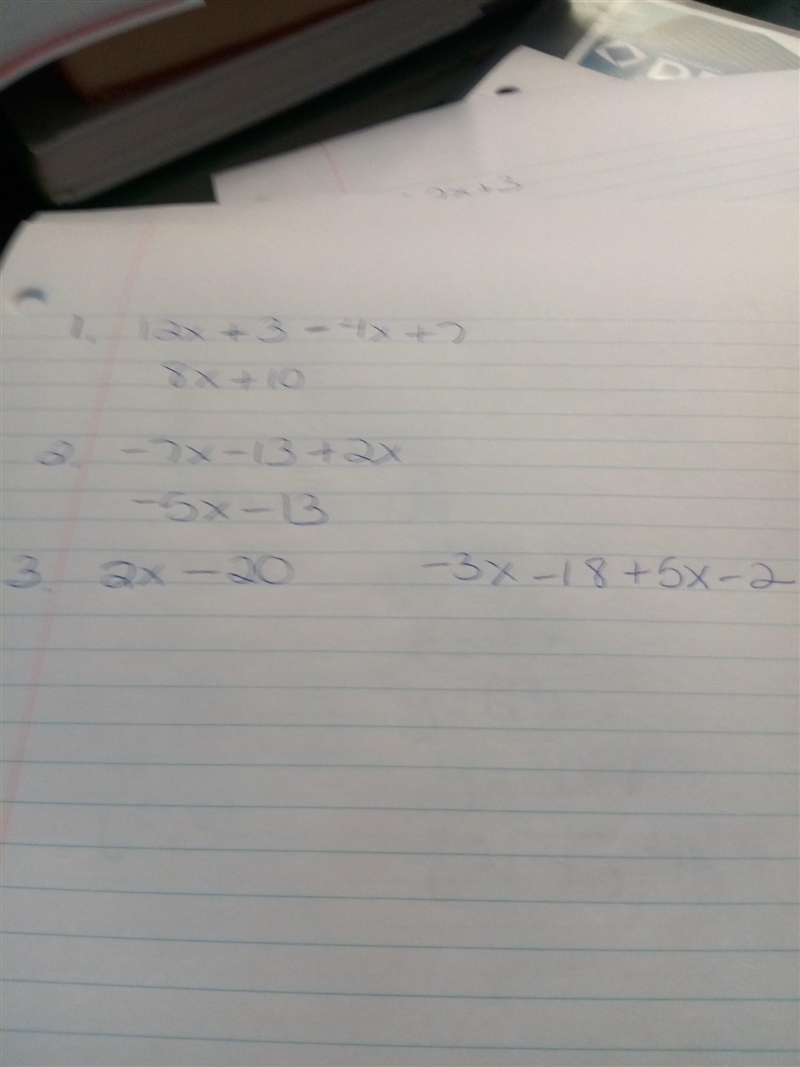 2x+3
1. 12x + 3 - 4x + 7
8x + 10
2. -7x - 13 + 2x
-5x - 13
3. 2x - 20 -3x - 18 + 5x - 2